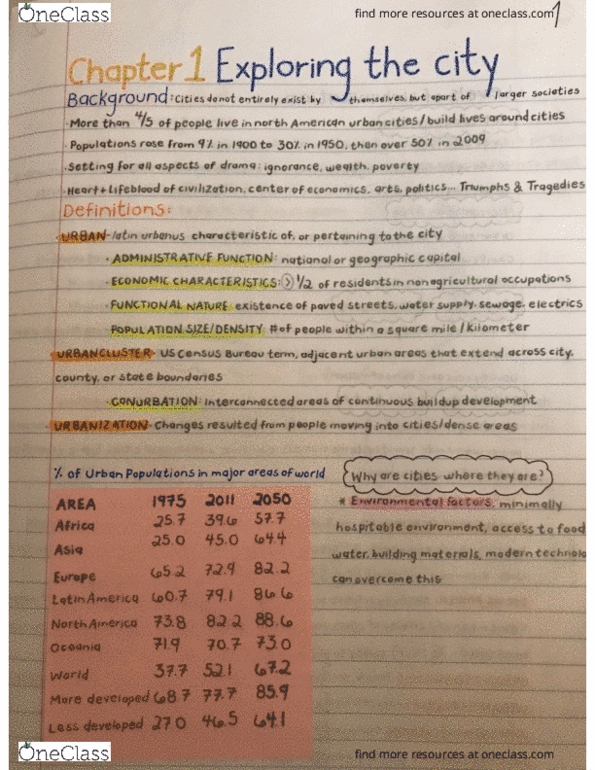 OneClass
find more resources at oneclass.com
1
Chapter 1 Exploring the city
Background: Cities do not entirely exist by themselves, but apart of larger societies
· More than 4/5 of people live in north American urban cities / build lives around cities
· Populations rose from 9% in 1900 to 30% in 1950, then over 50% in 2009
· Setting for all aspects of drama: ignorance, wealth, poverty
· Heart + Lifeblood of civilization, center of economics, arts, politics... Triumphs & Tragedies
Definitions:
URBAN - latin urbanus characteristic of, or pertaining to the city
· ADMINISTRATIVE FUNCTION: national or geographic capital
· ECONOMIC CHARACTERISTICS: > 1/2 of residents in nonagricultural occupations
· FUNCTIONAL NATURE existence of paved streets, water supply, sewage, electrics
POPULATION SIZE/DENSITY # of people within a square mile / kilometer
URBAN CLUSTER - US Census Bureau term, adjacent urban areas that extend across city,
county, or state boundaries
· CONURBATION: Interconnected areas of continuous buildup development
URBANIZATION - Changes resulted from people moving into cities/dense areas
% of Urban Populations in major areas of world
Why are cities where they are?
AREA 1975 2011 2050
Africa 25.7 39.6 57.7
Asia 25.0 45.0 64.4
Europe 65.2 72.9 82.2
Latin America 60.7 79.1 86.6
North America 73.8 82.2 88.6
Oceania 71.9 70.7 73.0
World 37.7 52.1 67.2
More developed 68.7 77.7 85.9
Less developed 27.0 46.5 64.1
* Environmental factors, minimally
hospitable environment, access to food
water, building materials, modern technolo
can overcome this
OneClass
find more resources at oneclass.com